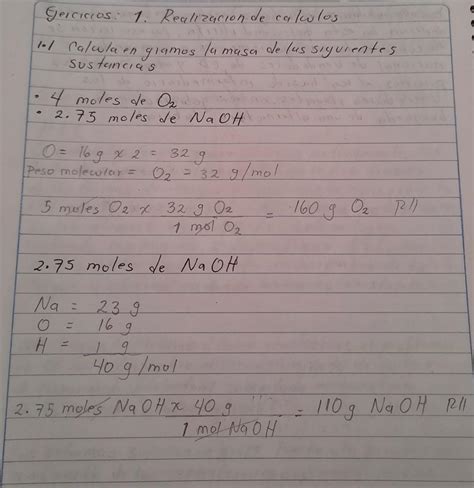 Ejercicios: 1. Realizacion de calculos
1.1 Calcula en gramos la masa de las siguientes
sustancias
• 4 moles de O2
• 2.75 moles de NaOH
O = 16 g x 2 = 32 g
Peso molecular = O2 = 32 g/mol
5 moles O2 x 32 g O2 = 160 g O2 R//
1 mol O2
2.75 moles de NaOH
Na = 23 g
O = 16 g
H = 1 g
40 g/mol
2.75 moles NaOH x 40 g = 110 g NaOH R//
1 mol NaOH